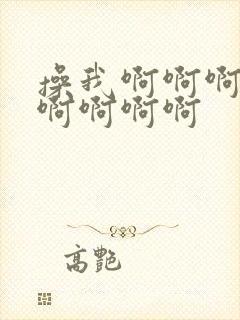 操我 啊啊啊
啊啊啊啊
高艷